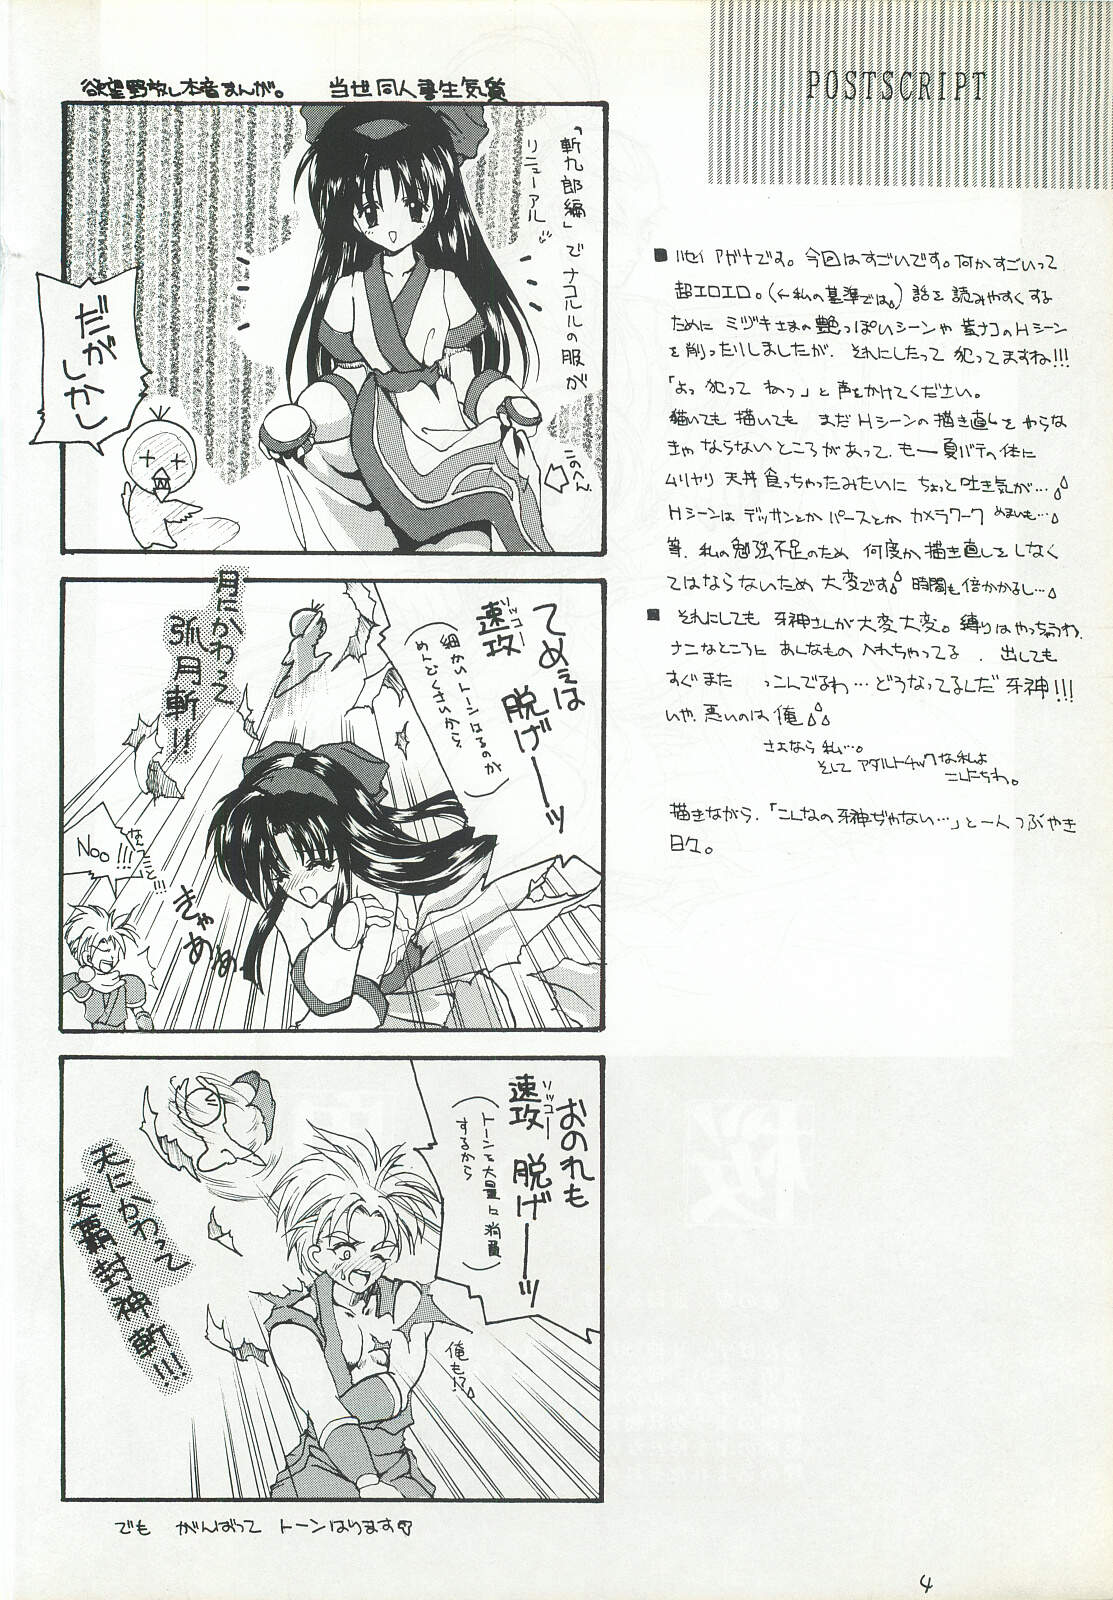 POSTSCRIPT
欲望野放し本音まんが。 当世同人書生気質
「斬九郎編」でナコルルの服が
リニューアル
だが
しかし
このへん
てめぇは
速攻 脱げーーッ
ソッコー
(細かいトーンはるのが
めんどくさいから)
月にかわって
弧月斬!!
なんてこと!!!
Noo!!!
きゃあああ
おのれも
速攻 脱げーーッ
ソッコー
(トーンを大量に消費
するから)
天にかわって
天覇封神斬!!!
俺も!?
でも がんばって トーンはります
■ アガナです。今回はすごいです。何かすごいって
超エロエロ。(←私の基準では。)話を読みやすくする
ために ミヅキさまの艶っぽいシーンやナコのHシーン
を削ったりしましたが、それにしたって 犯ってますね!!!
「よっ 犯って ねっ」と声をかけてください。
描いても 描いても まだHシーンの描き直しをやらな
きゃならないところがあって、も一夏バテの体に
ムリヤリ 天丼 食っちゃったみたいに ちょっと吐き気が…
Hシーンは デッサンとか パースとか カメラワーク めまいも…
等、私の勉強不足のため 何度か描き直しをしなく
てはならないため 大変です 時間も倍かかるし…
■ それにしても 牙神さんが大変大変。縛りはやっちゃうわ、
ナニなところに あんなもの 入れちゃってる、出しても
すぐまた っこんでるわ…どうなってるんだ 牙神!!!
いや、悪いのは 俺
さよなら 私…。
そして アダルトチックな私よ
こんにちわ。
描きながら、「こんなの牙神ぢゃない…」と一人つぶやき
日々。
4